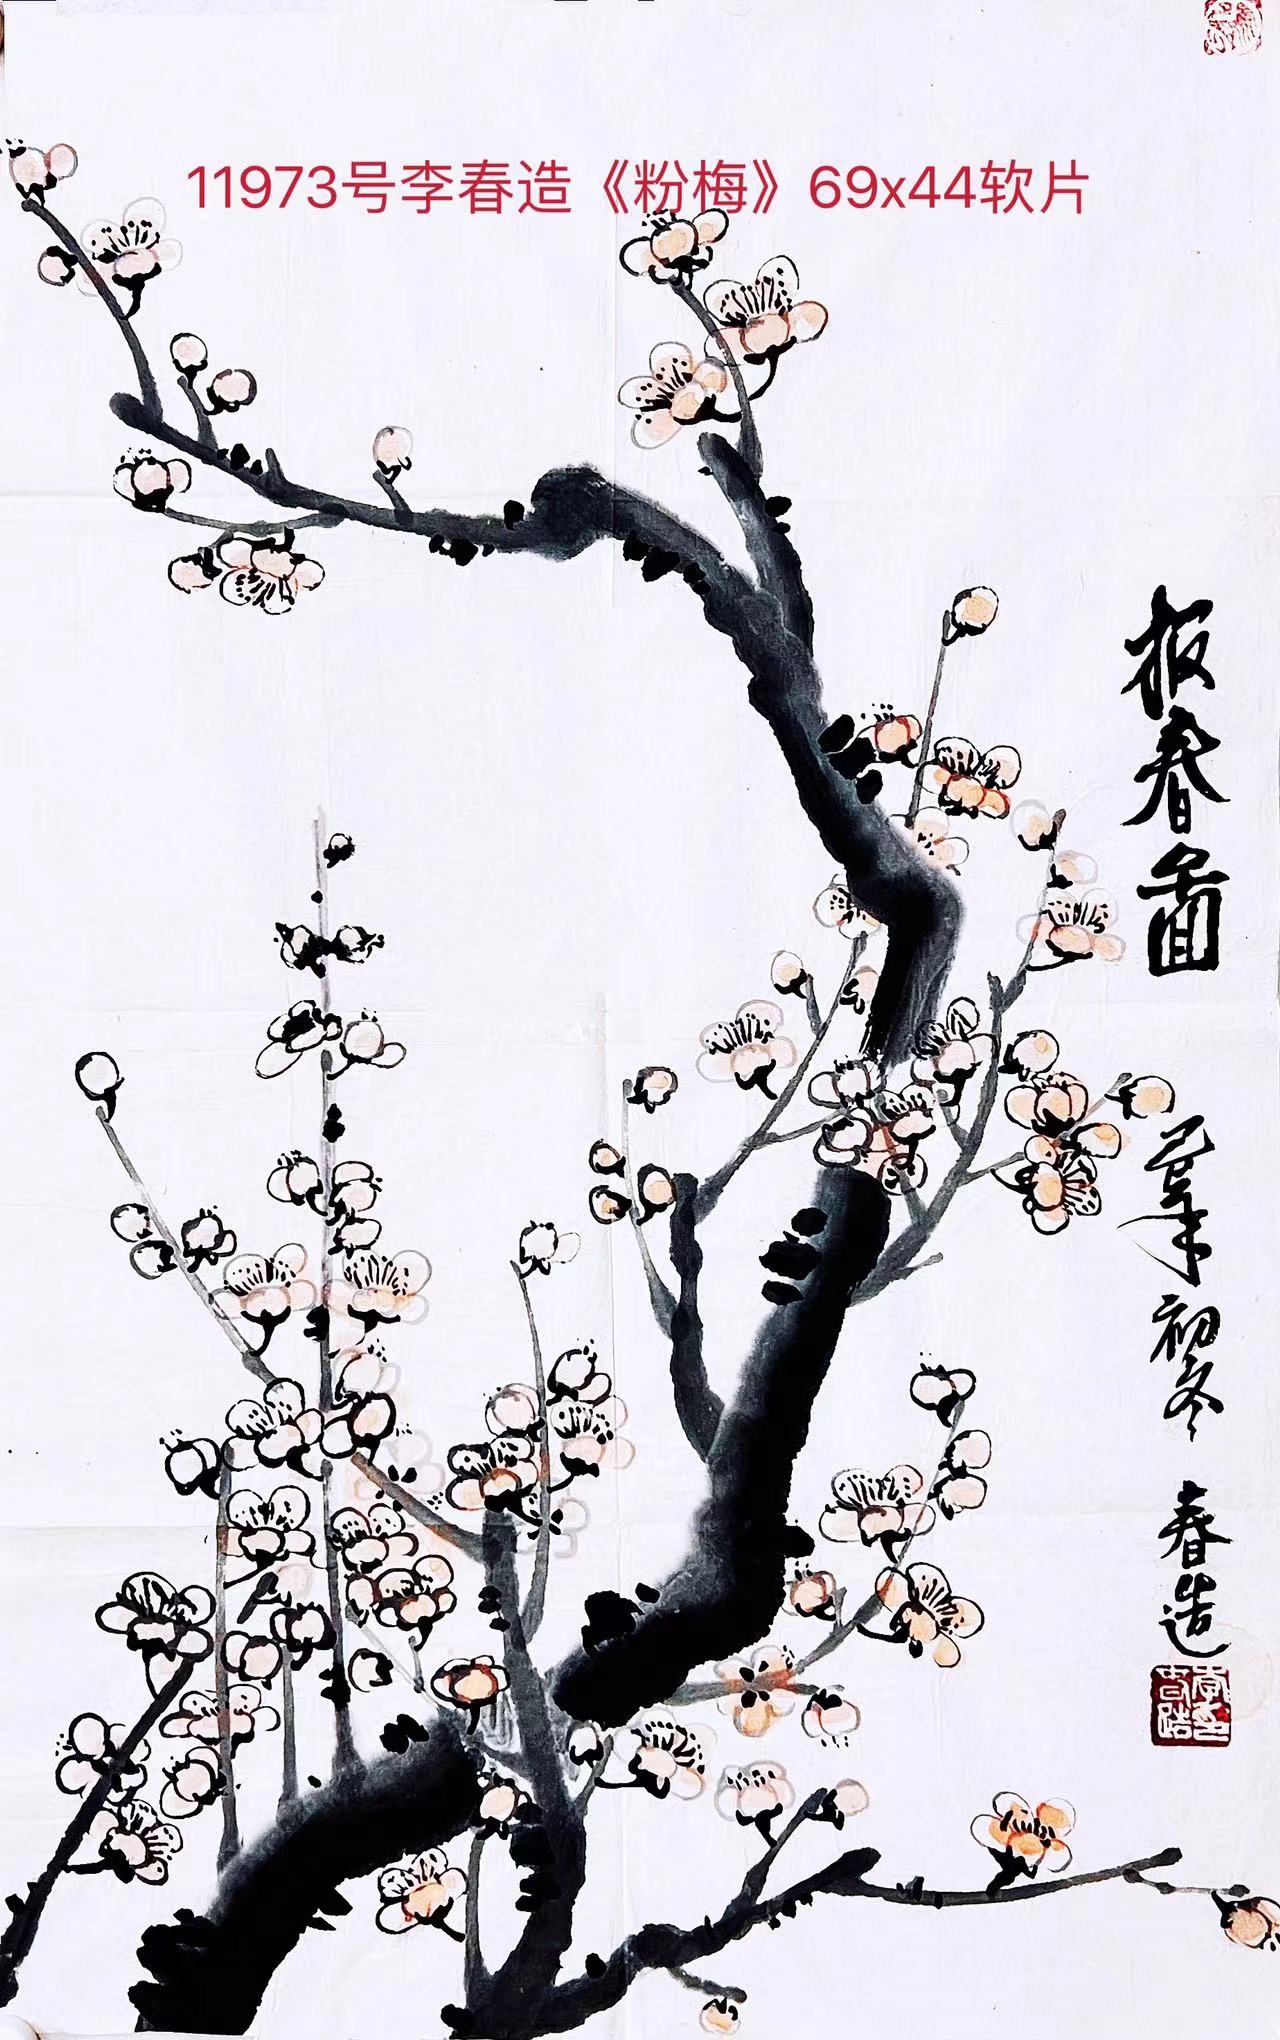 11973号李春造《粉梅》69x44软片
报春图
初冬
春造